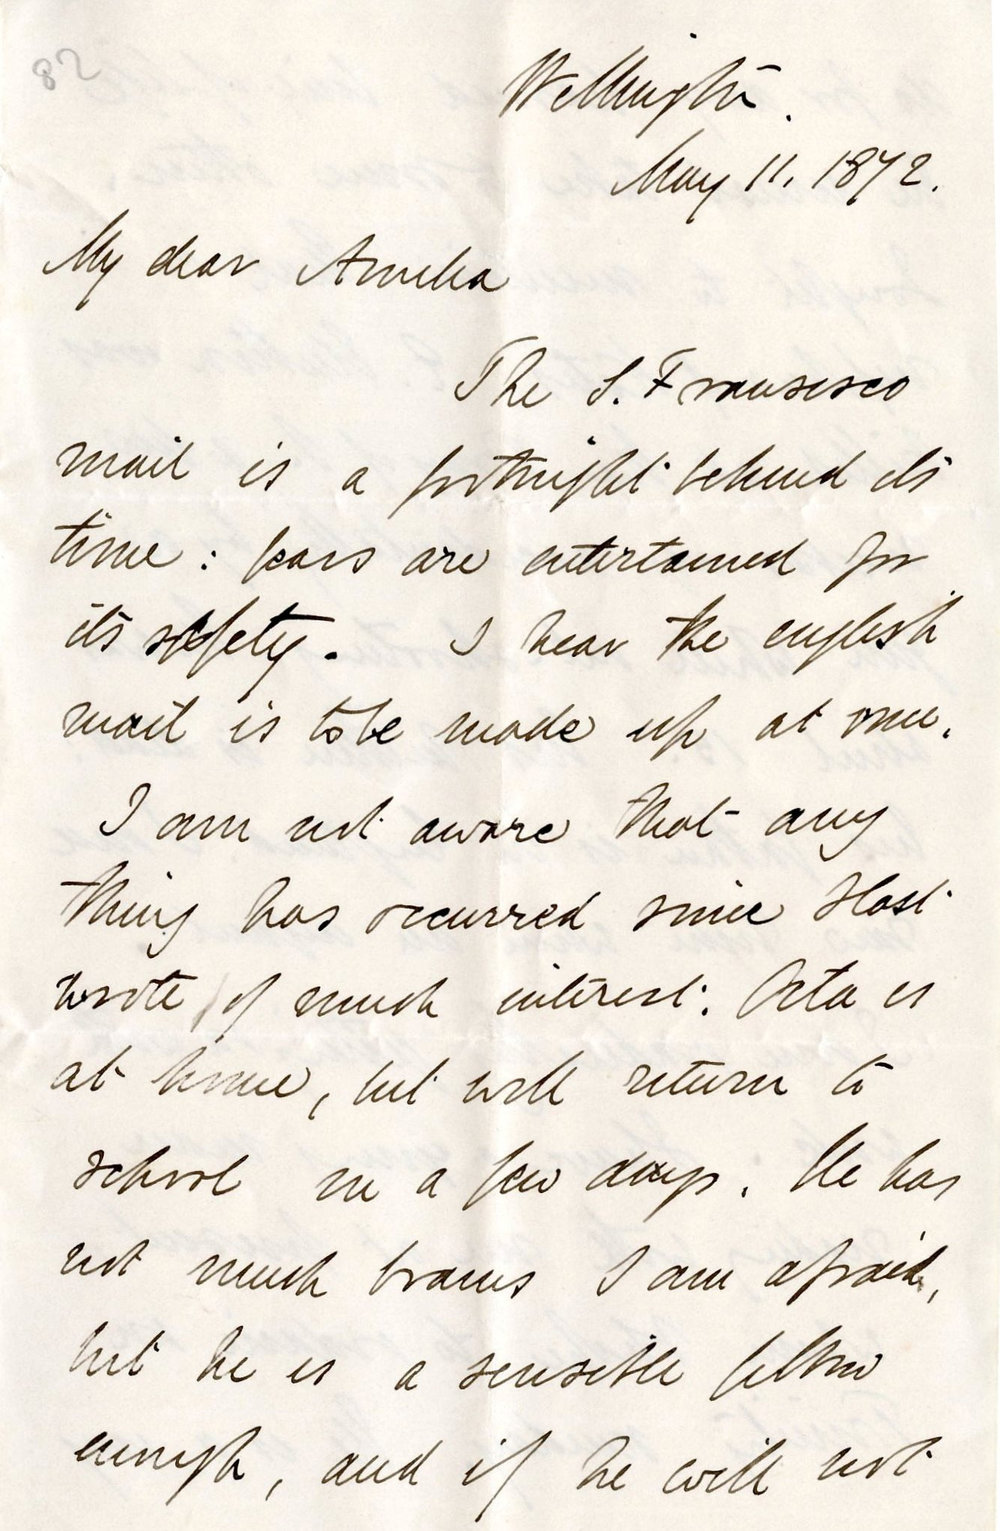 82
Wellington.
May 11. 1872.
My dear Amelia
The S. Fransisco
mail is a fortnight behind its
time : fears are entertained for
its safety. I hear the english
mail is to be made up at once.
I am not aware that any
thing has occurred since I last
wrote, of much interest. Octa is
at home, but will return to
school in a few days. He has
not much brains I am afraid,
but he is a sensible fellow
enough, and if he will not